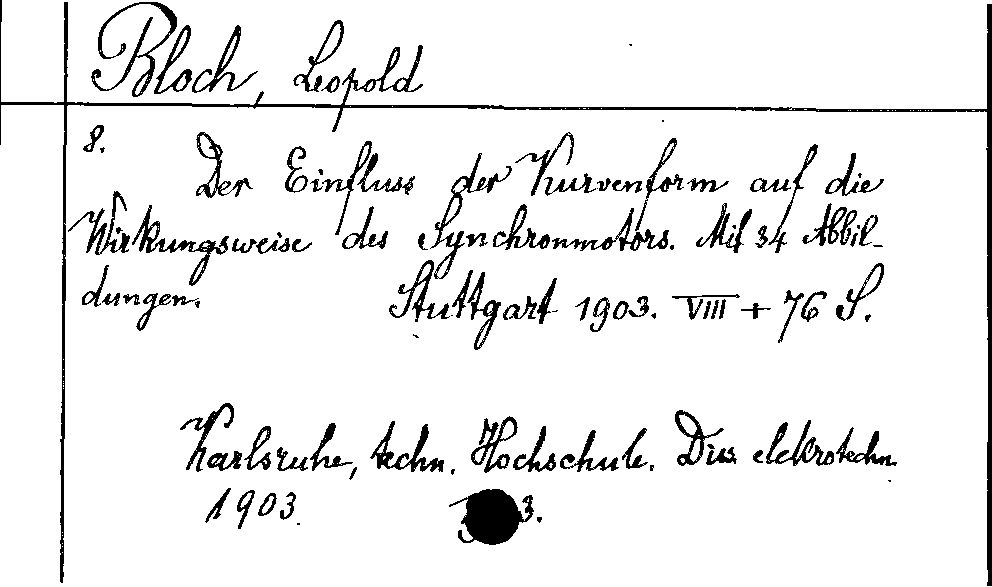 Bloch, Leopold
8.
Der Einfluss der Kurvenform auf die
Wirkungsweise des Synchronmotors. Mit 34 Abbil-
dungen. Stuttgart 1903. VIII + 76 S.
Karlsruhe, techn. Hochschule. Diss. elektrotechn.
1903. 3.